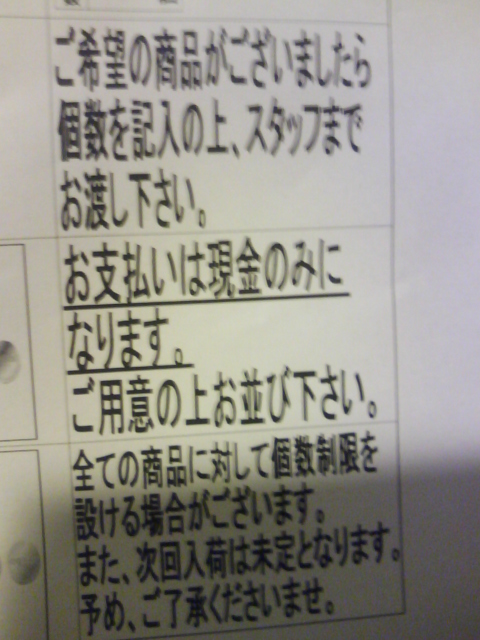 ご希望の商品がございましたら
個数を記入の上、スタッフまで
お渡し下さい。
お支払いは現金のみに
なります。
ご用意の上お並び下さい。
全ての商品に対して個数制限を
設ける場合がございます。
また、次回入荷は未定となります。
予め、ご了承くださいませ。